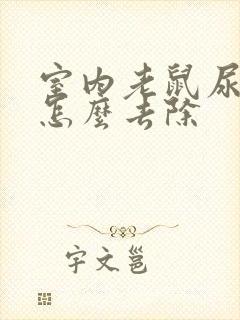 室内老鼠尿
怎麼去除
宇文邕